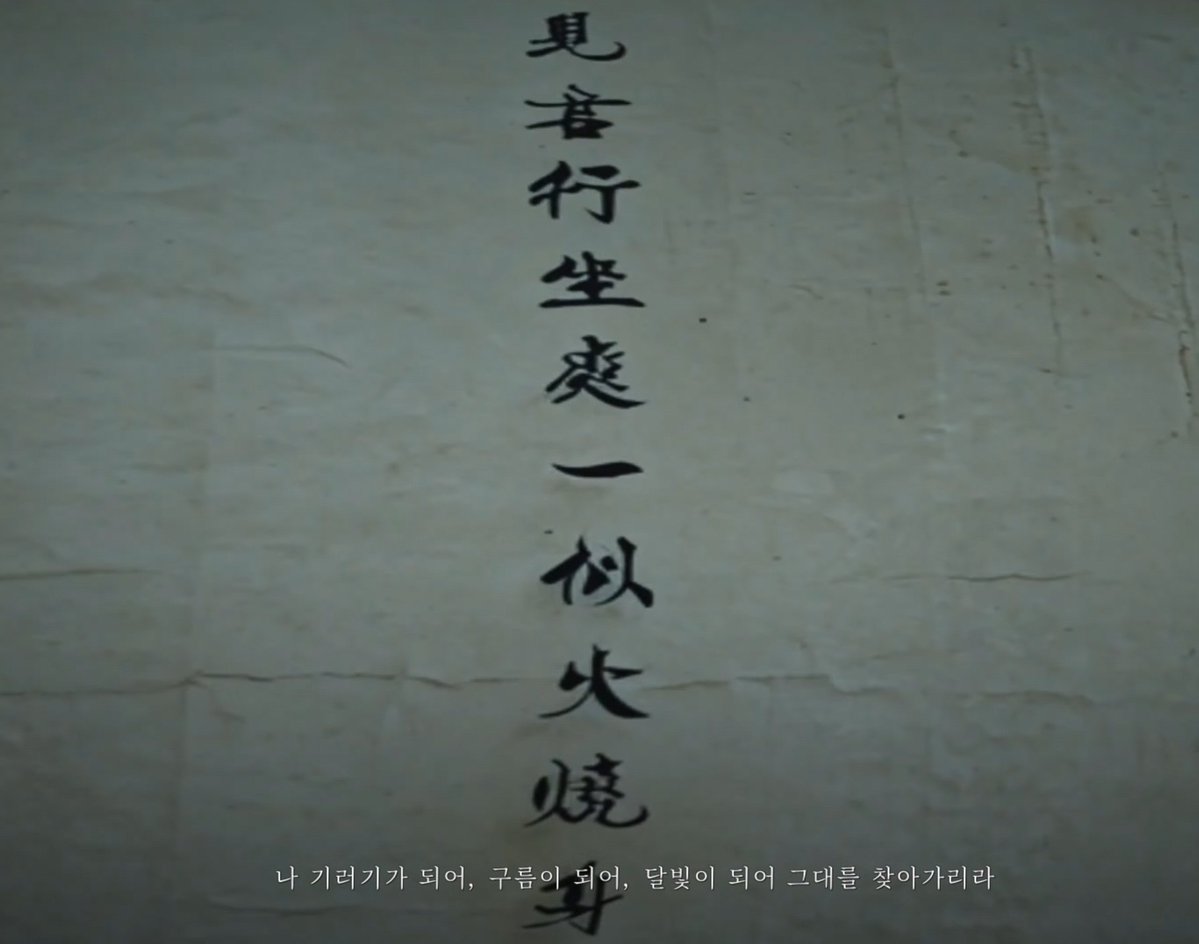 見君行坐處一似火燒身
나 기러기가 되어, 구름이 되어, 달빛이 되어 그대를 찾아가리라